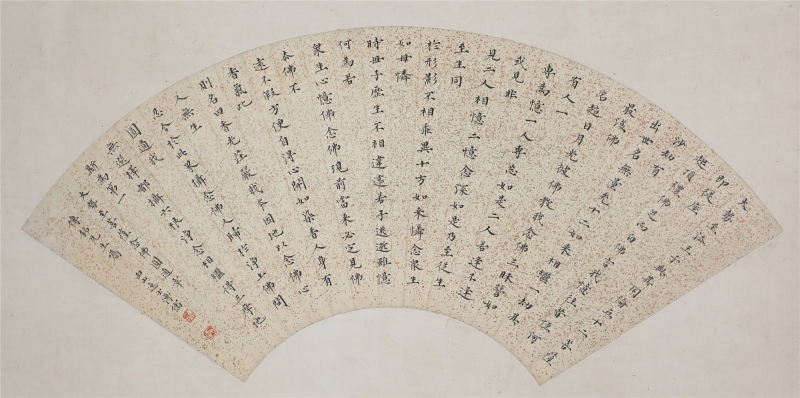 大勢至法王子與其同倫五十二菩薩
即從座
起頂禮佛足而白佛言我憶往昔恒河
沙劫有佛
出世名無量光十二如來相繼一劫其
最後佛
名超日月光彼佛教我念佛三昧譬如
有人一
專為憶一人專忘如是二人若逢不逢
或見非
見二人相憶二憶念深如是乃至從生
至生同
於形影不相乖異十方如來憐念眾生
如母憐
時母子歷生不相違遠若子逃逝雖憶
何為若
眾生心憶佛念佛現前當來必定見佛
去佛不
遠不假方便自得心開如染香人身有
香氣此
則名曰香光莊嚴我本因地以念佛心
入無生
忍今於此界攝念佛人歸於淨土佛問
圓通我
無選擇都攝六根淨念相繼得三摩地
斯為第一
大勢至菩薩念佛圓通章
先生